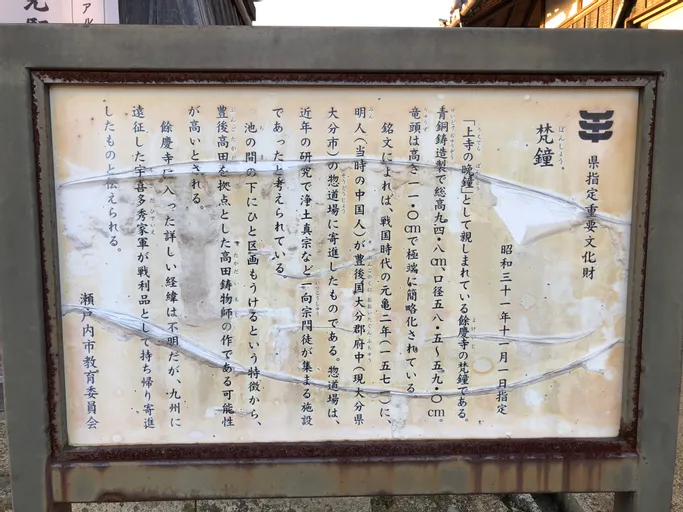 県指定重要文化財
梵鐘
ぼんしょう
昭和三十一年十一月一日指定
「上寺の晩鐘」として親しまれている餘慶寺の梵鐘である。
青銅鋳造製で総高九四・八㎝、口径五八・五～五九・〇㎝。
竜頭は高さ一一・〇㎝で極端に簡略化されている。
銘文によれば、戦国時代の元亀二年（一五七一）に、
明人（当時の中国人）が豊後国大分郡府中（現大分県
大分市）の惣道場に寄進したものである。惣道場は、
近年の研究で浄土真宗など一向宗門徒が集まる施設
であったと考えられている。
池の間の下にひと区画もうけるという特徴から、
豊後高田を拠点とした高田鋳物師の作である可能性
が高いとされる。
餘慶寺に入った詳しい経緯は不明だが、九州に
遠征した宇喜多秀家軍が戦利品として持ち帰り寄進
したものと伝えられる。
瀬戸内市教育委員会
アル